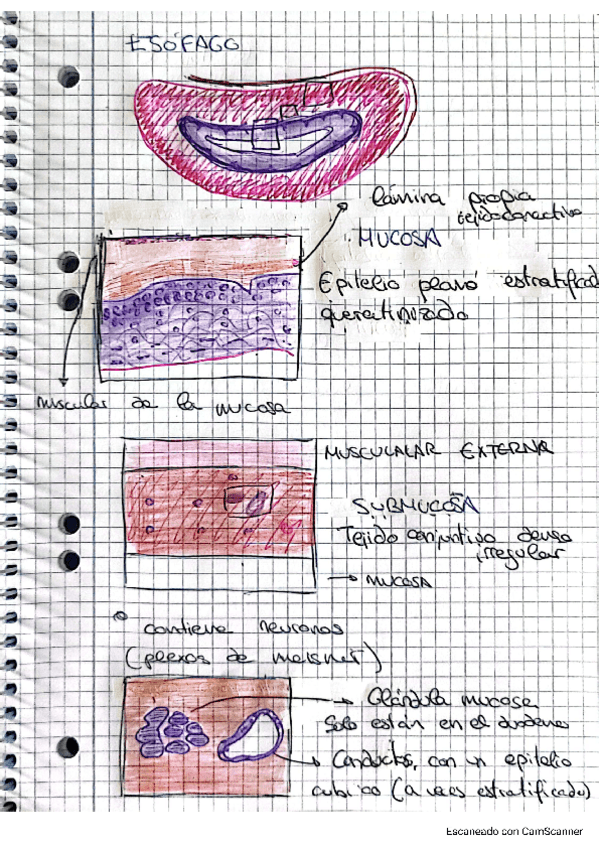 ESÓFAGO
lámina propia
tejido conectivo
MUCOSA
Epitelio plano estratificad
queratinizado
muscular de la mucosa
MUSCULALAR EXTERNA
SUBMUCOSA
Tejido conjuntivo denso
irregular
MUCOSA
contiene neuronas
(plexos de meisner)
Glándula mucosa
Solo están en el duodeno
Conductos, con un epitelio
cubico (a veces estratificado)
Escaneado con CamScanner